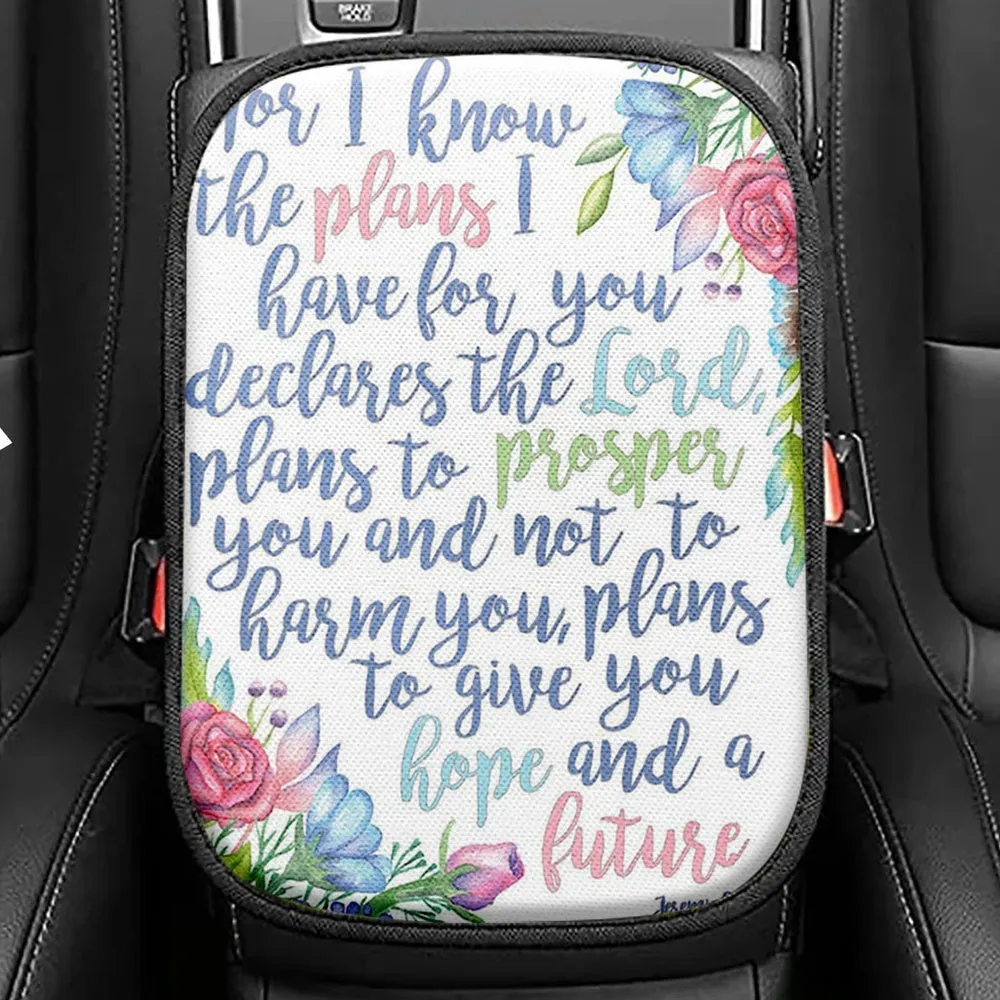 BRAKE
HOLD
for I know
the plans I
have for you
declares the Lord,
plans to prosper
you and not to
harm you, plans
to give you
hope and a
future